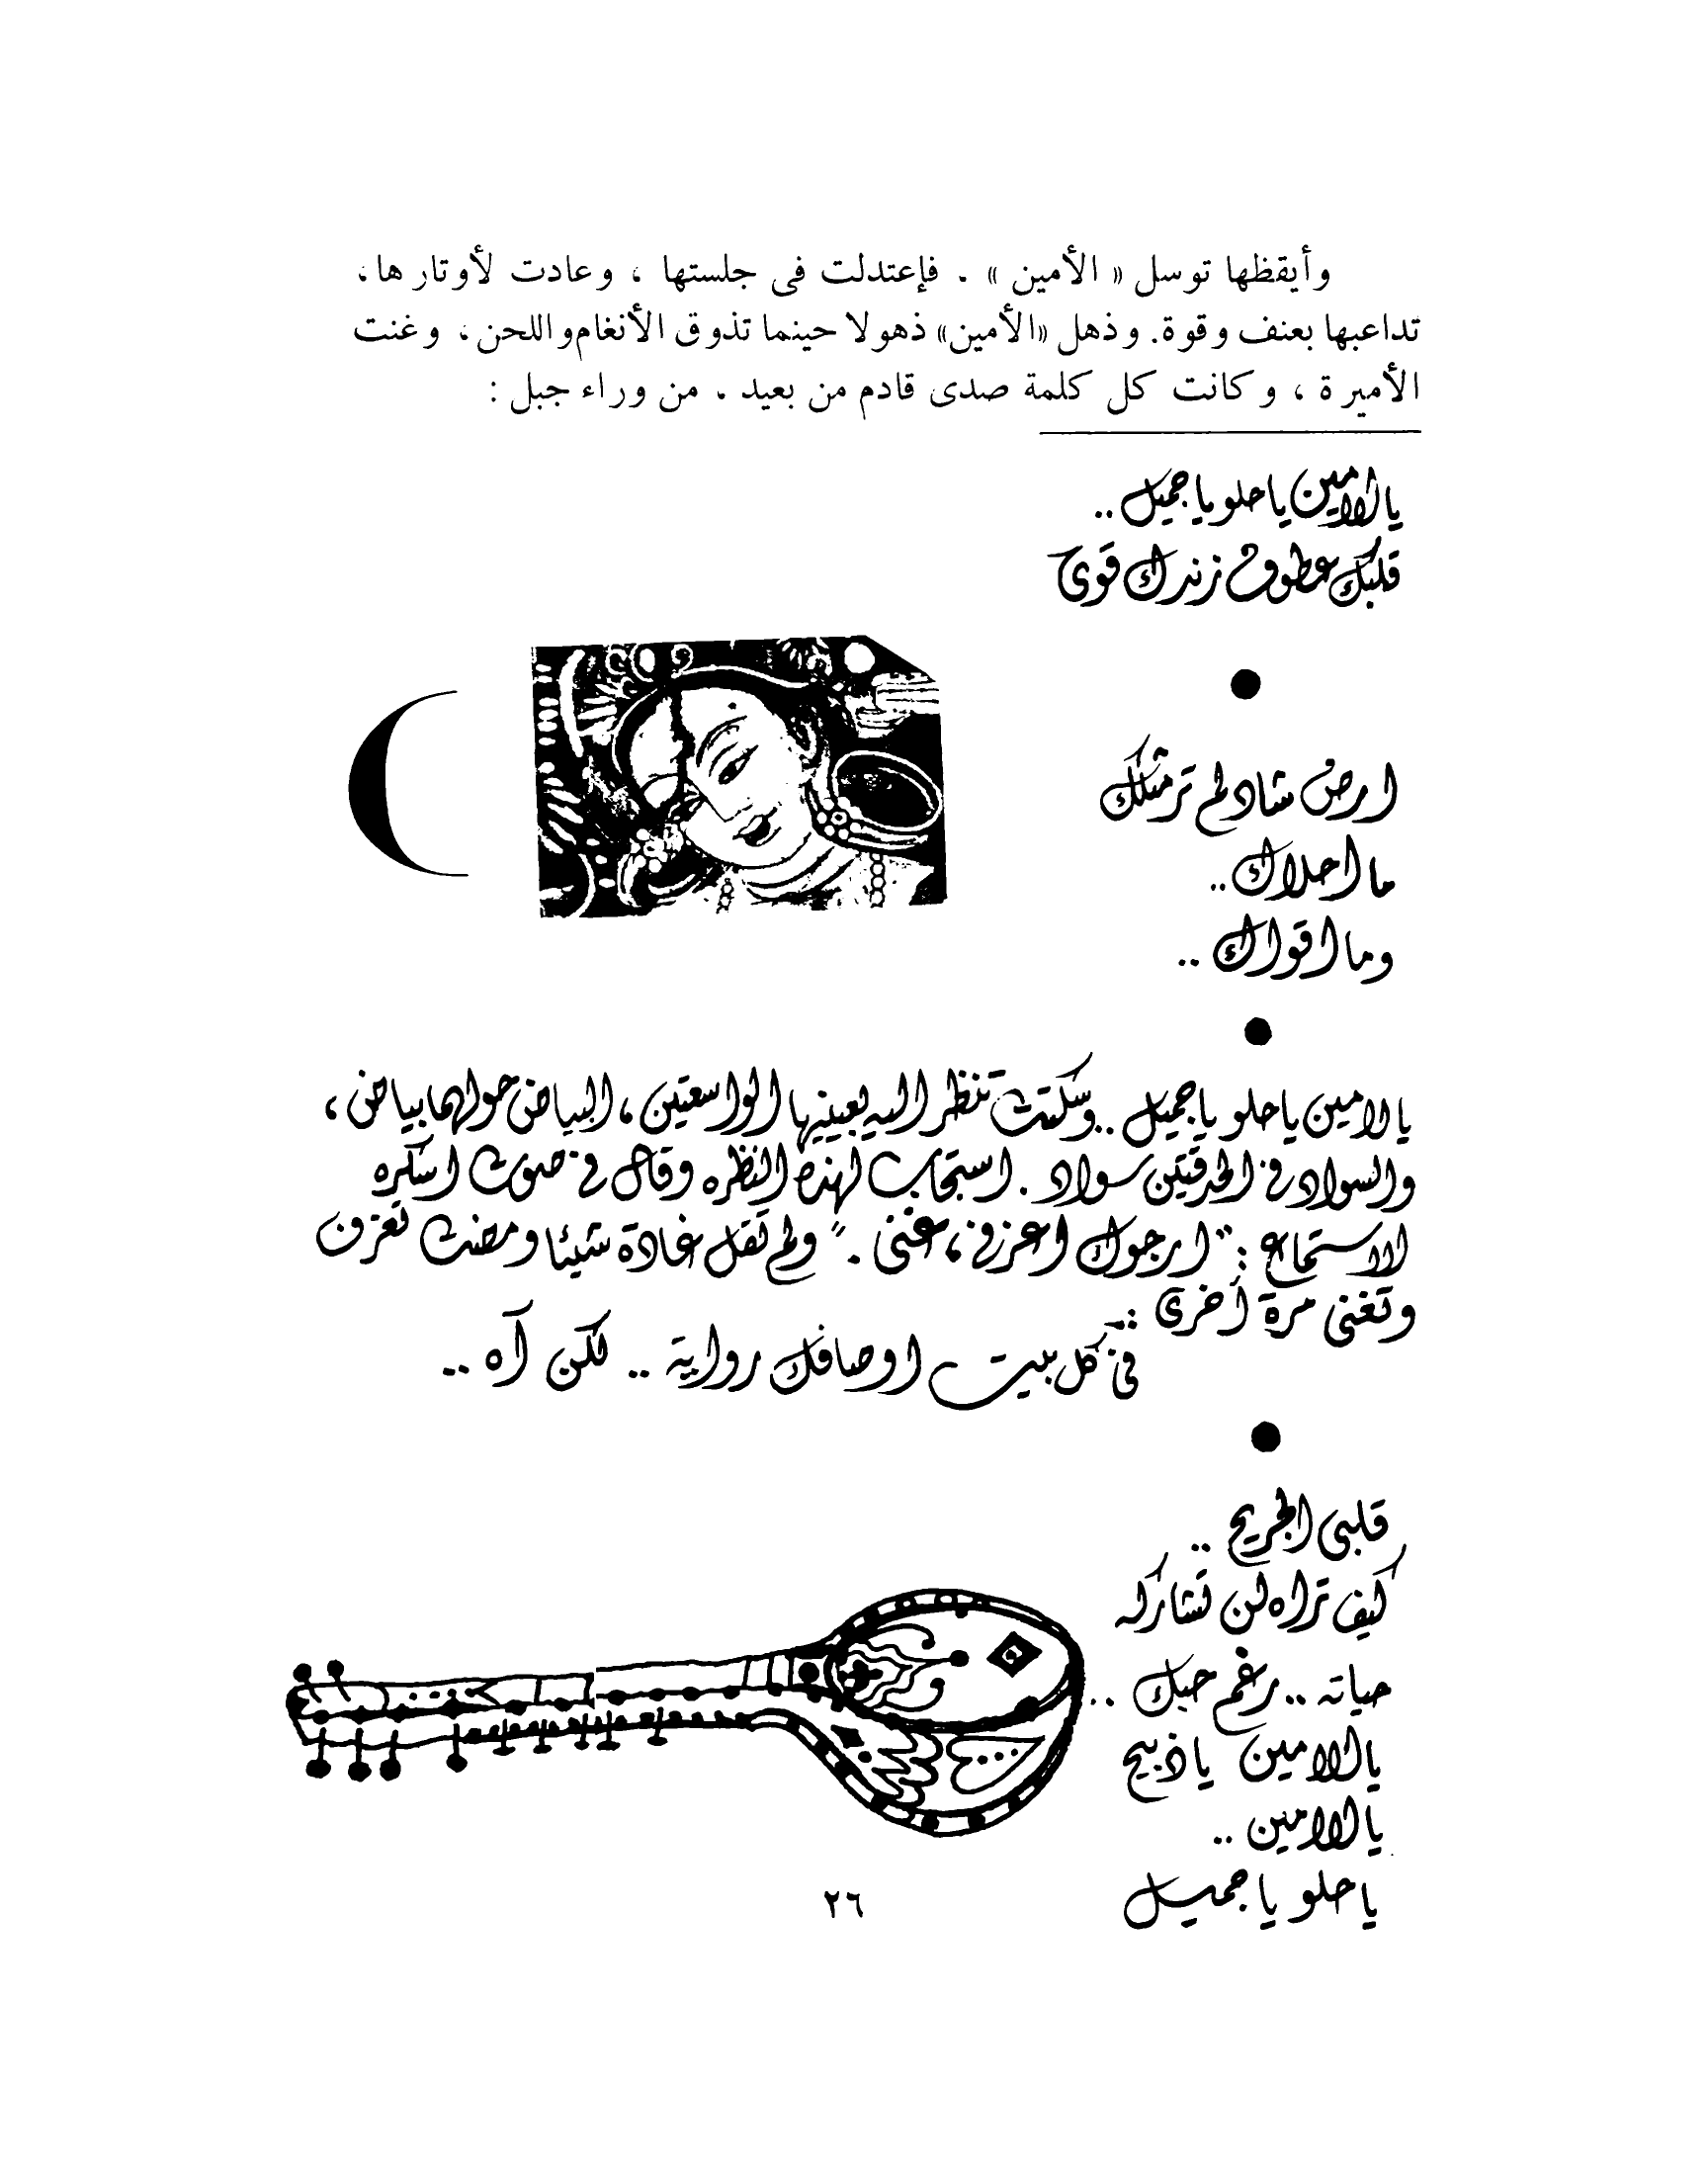 وأيقظها توسل « الأمين » . فإعتدلت فى جلستها ، وعادت لأوتارها،
تداعبها بعنف وقوة. وذهل «الأمين» ذهولا حينما تذوق الأنغام واللحن، وغنت
الأميرة ، وكانت كل كلمة صدى قادم من بعيد . من وراء جبل :
يالامين ياحلو ياجميل ..
قلبك عطوف زندك قوى
ارض شاد لم تر مثلك
ما احلاك ..
وما اقواك ..
يالامين ياحلو ياجميل .. وسكتت تنظر اليه بعينيها الواسعتين، البياض حولهما بياض،
والسواد فى الحدقتين سواد . استجاب لهذه النظره وقال فى صوت اسكره
الاستماع : " ارجوك اعزفى، غنى . " ولم تقل غادة شيئا ومضت تعزف
وتغنى مرة أخرى :-
فى كل بيت اوصافك رواية .. لكن آه ..
قلبى الجريح ..
كيف تراه لن تشاركه
حياته .. رغم حبك ..
يالامين ياذبيح
يالامين ..
ياحلو ياجميل
٢٦